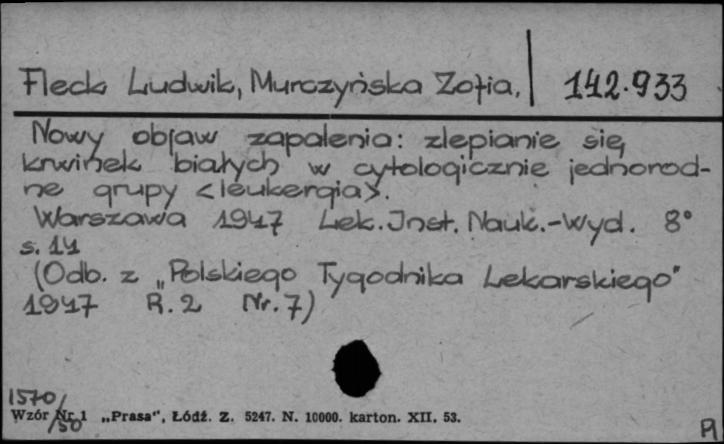 Fleck Ludwik, Murczyńska Zofia. 142.933
Nowy objaw zapalenia: zlepianie się
krwinek białych w cytologicznie jednorod-
ne grupy <leukergia>.
Warszawa 1947 Lek. Inst. Nauk.-Wyd. 8°
s. 14
(Odb. z „Polskiego Tygodnika Lekarskiego"
1947 R. 2 Nr. 7)
1570/50
Wzór Nr 1 „Prasa", Łódź. Z. 5247. N. 10000. karton. XII. 53.